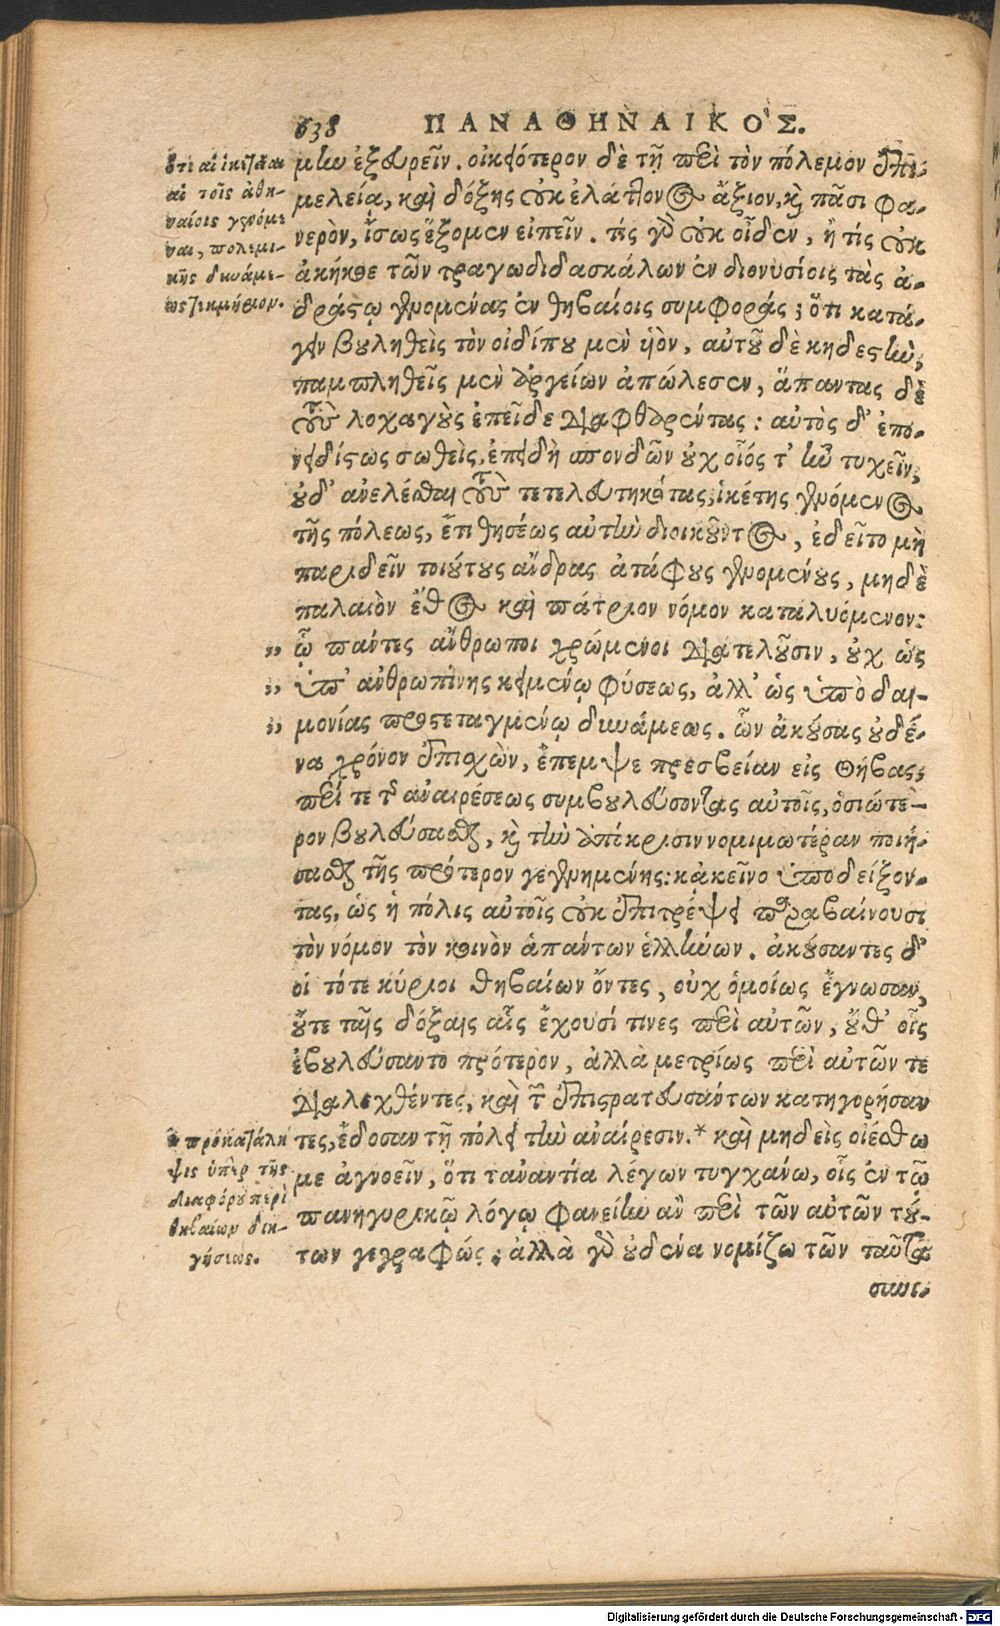 638 ΠΑΝΑΘΗΝΑΙΚΟΣ.
ὅτι αἱ ἱκετεῖαι
αἱ τοῖς ἀθη-
ναίοις γενόμε
ναι, πολεμι-
κῆς δυνάμε-
ως τεκμήριον.
μὴν ἐξευρεῖν. οἰκειότερον δὲ τῇ περὶ τὸν πόλεμον ἐπι-
μελείᾳ, καὶ δόξης οὐκ ἐλάττονος ἄξιον, καὶ πᾶσι φα-
νερὸν, ἴσως ἕξομεν εἰπεῖν. τίς γὰρ οὐκ οἶδεν, ἢ τίς οὐκ
ἀκήκοε τῶν τραγωδιδασκάλων ἐν διονυσίοις τὰς ἀ-
δράστῳ γενομένας ἐν θηβαίοις συμφοράς; ὅτι κατά-
γειν βουληθεὶς τὸν οἰδίπου μὲν ὑὸν, αὐτοῦ δὲ κηδεστὴν,
παμπληθεῖς μὲν ἀργείων ἀπώλεσεν, ἅπαντας δὲ
τοὺς λοχαγοὺς ἐπεῖδε διαφθαρέντας: αὐτὸς δ' ἐπο-
νειδίστως σωθεὶς, ἐπειδὴ σπονδῶν οὐχ οἷός τ' ἦν τυχεῖν,
οὐδ' ἀνελέσθαι τοὺς τετελευτηκότας, ἱκέτης γενόμενος
τῆς πόλεως, ἔτι θησέως αὐτὴν διοικοῦντος, ἐδεῖτο μὴ
παριδεῖν τοιούτους ἄνδρας ἀτάφους γενομένους, μηδὲ
παλαιὸν ἔθος καὶ πάτριον νόμον καταλυόμενον:
,, ᾧ πάντες ἄνθρωποι χρώμενοι διατελοῦσιν, οὐχ ὡς
,, ὑπ' ἀνθρωπίνης κειμένῳ φύσεως, ἀλλ' ὡς ὑπὸ δαι-
,, μονίας προστεταγμένῳ δυνάμεως. ὧν ἀκούσας οὐδέ-
να χρόνον ἐπισχὼν, ἔπεμψε πρεσβείαν εἰς Θήβας,
περί τε τῆς ἀναιρέσεως συμβουλεύσοντας αὐτοῖς, ὁσιώτε-
ρον βουλεύσασθαι, καὶ τὴν ἀπόκρισιν νομιμωτέραν ποιή-
σασθαι τῆς πρότερον γεγενημένης: κἀκεῖνο ὑποδείξον-
τας, ὡς ἡ πόλις αὐτοῖς οὐκ ἐπιτρέψει παραβαίνουσι
τὸν νόμον τὸν κοινὸν ἁπάντων ἑλλήνων. ἀκούσαντες δ'
οἱ τότε κύριοι θηβαίων ὄντες, οὐχ ὁμοίως ἔγνωσαν,
οὔτε ταῖς δόξαις αἷς ἔχουσί τινες περὶ αὐτῶν, οὔθ' οἷς
ἐβουλεύσαντο πρότερον, ἀλλὰ μετρίως περὶ αὐτῶν τε
διαλεχθέντες, καὶ τῶν ἐπιστρατευσάντων κατηγορήσαν
τες, ἔδοσαν τῇ πόλει τὴν ἀναίρεσιν.* καὶ μηδεὶς οἰέσθω
με ἀγνοεῖν, ὅτι τἀναντία λέγων τυγχάνω, οἷς ἐν τῶ
πανηγυρικῷ λόγῳ φανείην ἂν περὶ τῶν αὐτῶν τού-
των γεγραφώς; ἀλλὰ γὰρ οὐδένα νομίζω τῶν ταῦτα
* προκατάλη
ψις ὑπὲρ τῆς
διαφόρου περὶ
θηβαίων διη-
γήσεως.
συνι-
Digitalisierung gefördert durch die Deutsche Forschungsgemeinschaft - DFG